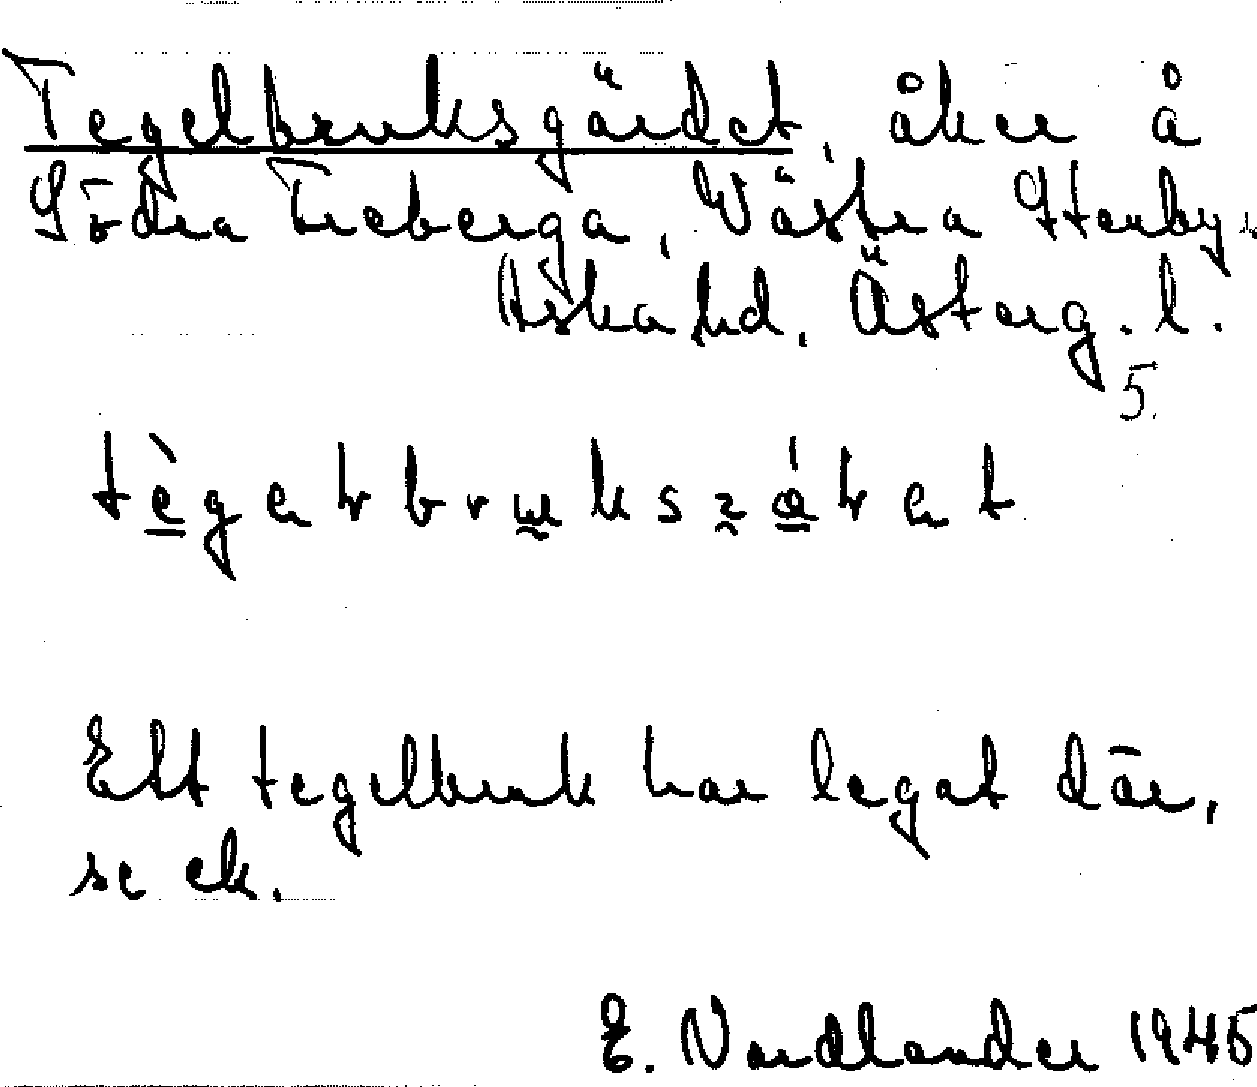 Tegelbruksgärdet, åker å
Södra Freberga, Västra Stenby,
Aska hd, Österg. l.
5.
Ett tegelbruk har legat där,
se ek.
E. Nordlander 1945